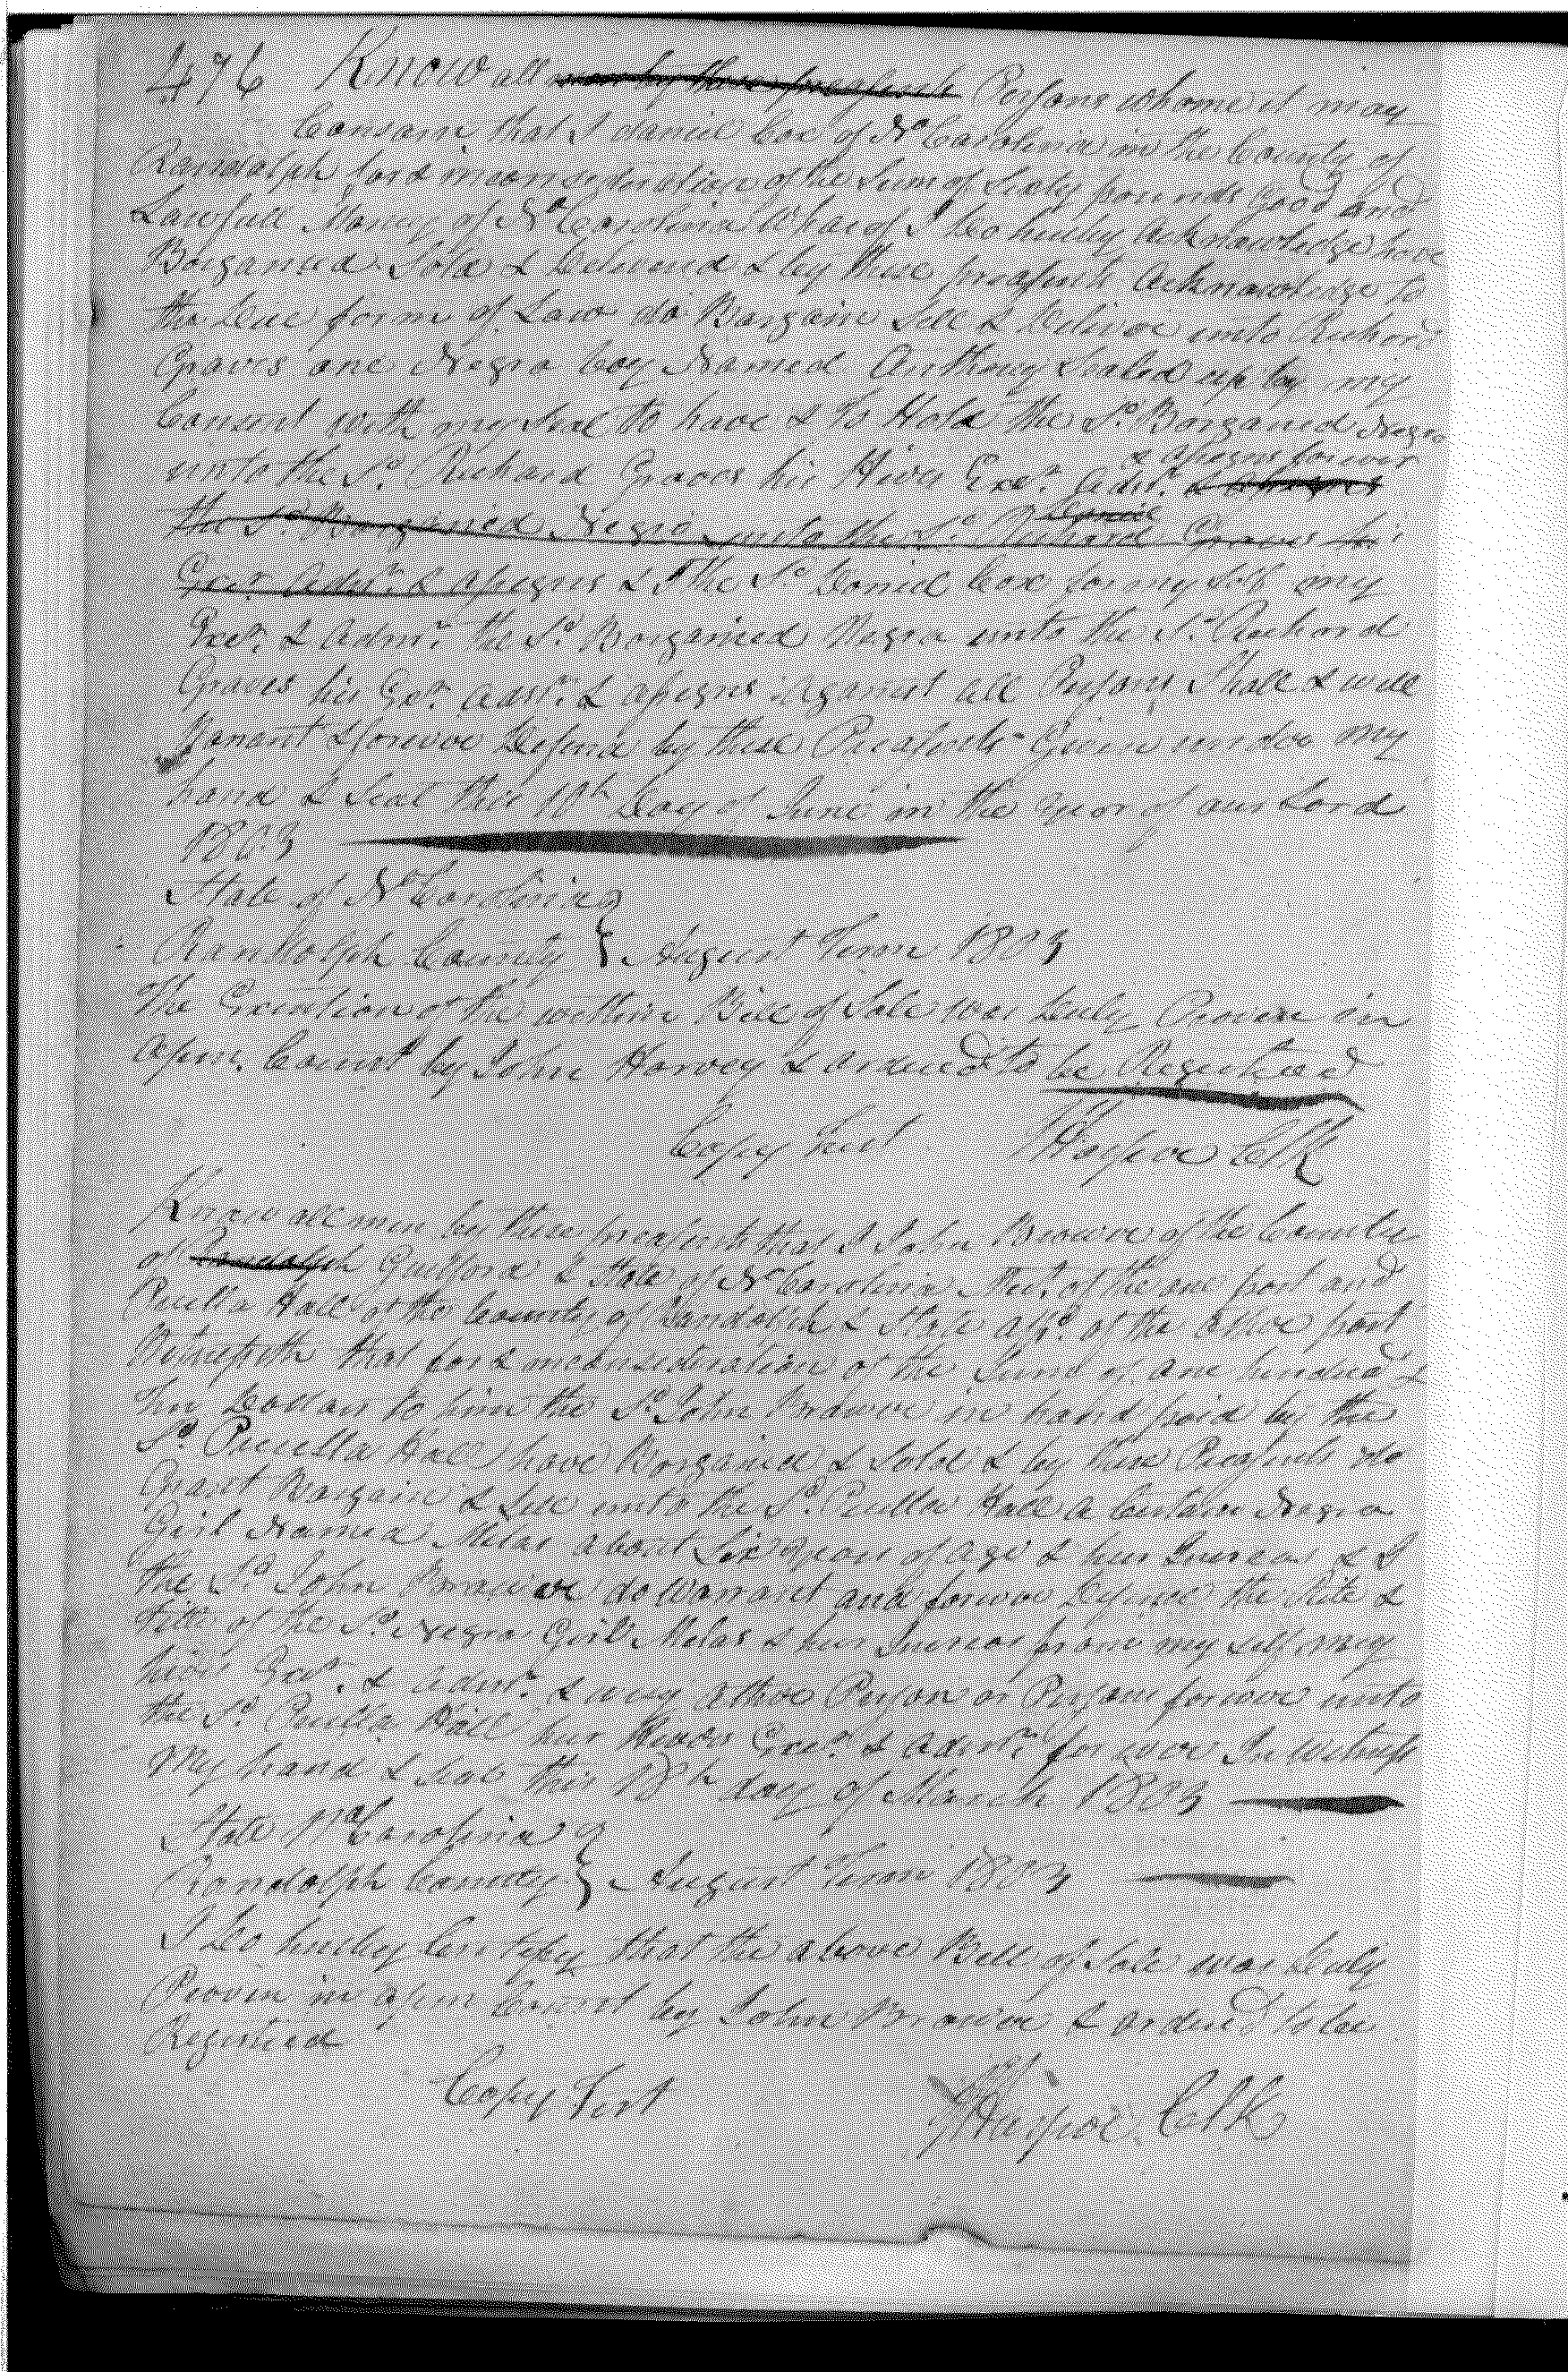 476 Know all men by these presents Persons whome it may
Consarn that I daniel Cox of No Carolina in the County of
Randolph for & inconsideration of the Sum of Sixty pounds good and
Lawfull Money of No Carolina Whareof I Do hereby Acknowledge have
Borganed Sold & Delivered & by these presents Acknowledge to
the Due form of Law do Bargain Sell & Deliver unto Richard
Graves one Negro boy Named Anthony Sealed up by my
Consent with my Seal to have & to Hold the Sd Borganed Negro
& assigns forever
unto the Sd Richard Graves his Heirs Exr. Admr. &
the Sd Borganed Negro unto the Sd Richard Graves his
Exer. Admr. & assigns & I the Sd Daniel Cox for my Self my
Exer. & Admr. the Sd Borgained Negro unto the Sd Richard
Graves his Exr. Admr. & assigns Against all Persons Shall & will
Warrant & forever Defend by these Presents Given under my
hand & Seal this 10th Day of June in the year of our Lord
1803
State of No Carolina
Randolph County } August Term 1803
The Execution of the within Bill of Sale was Duly Proven in
open Court by John Harvey & ordered to be Registered
Copy Test Harper Clk
Know all men by these presents that I John Brower of the County
of Randolph Guilford & State of No Carolina of the one part and
Hall of the County of Randolph & State affd. of the other part
Witnesseth that for & inconsideration of the Sum of one hundred &
Ten Dollars to him the Sd John Brower in hand paid by the
Sd Hall have Borganed & Sold & by these Presents do
Grant Bargain & Sell unto the Sd Hall A Certain Negro
Girl Named Milas about Six years of age & her Increas & I
the Sd John Brower do Warrant and forever Defend the Rite &
Title of the Sd Negro Girl Milas & her Increas from my self my
heirs Exr. & Admr. & every other Person or Persons forever unto
the Sd Hall her Heirs Exer. & Admr. for ever In Witness
My hand & Seal this 18th day of March 1803
State No Carolina
Randolph County } August Term 1803
I Do hereby Certify that the above Bill of Sale was Duly
Proven in open Court by John Brower & ordered to be
Registered
Copy Test Harper Clk